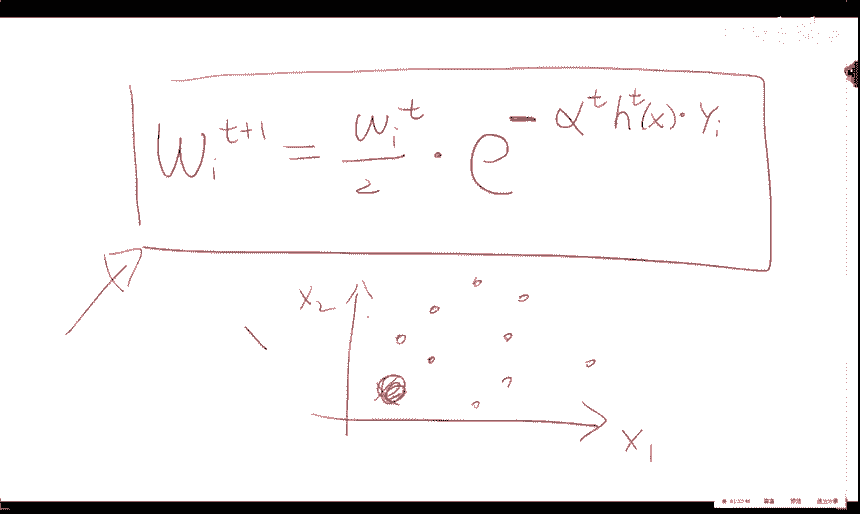 Wᵢᵗ⁺¹ = wᵢᵗ / z · e^(- αᵗ hᵗ(x) · Yᵢ)
X₂
X₁